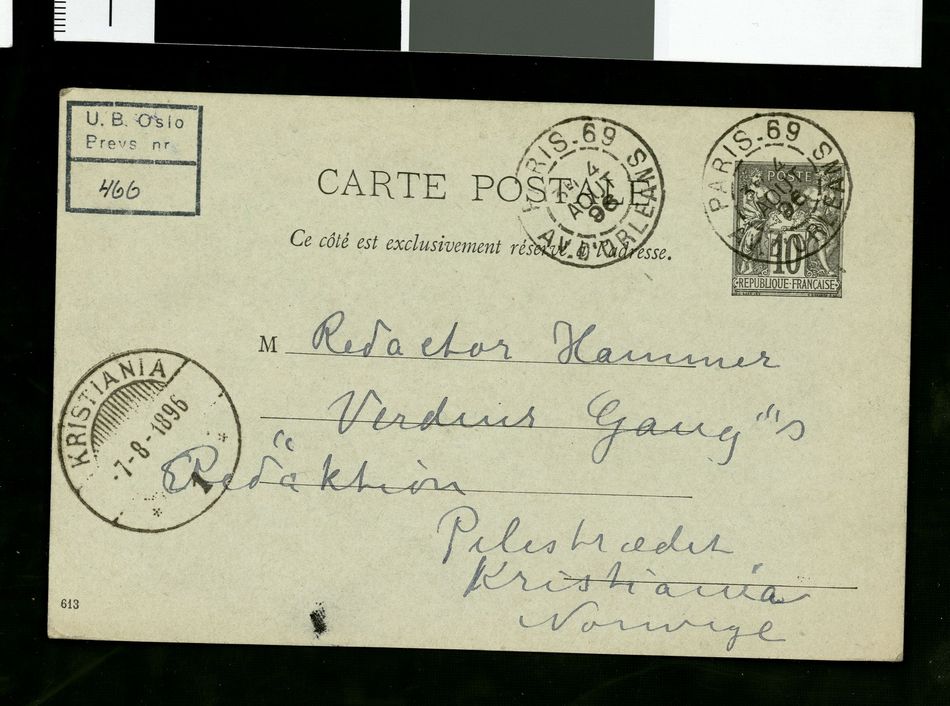 U. B. Oslo
Brevs nr
466
CARTE POSTALE
Ce côté est exclusivement réservé à l'adresse.
PARIS_69
4
AOUT
96
AV. D'ORLEANS
PARIS_69
4
AOUT
96
AV. D'ORLEANS
POSTE
10
REPUBLIQUE FRANÇAISE
M Redactor Hammer
"Verdens Gang"s
Redaktion
Pilestrædet
Kristiania
Norwège
KRISTIANIA
-7-8-1896
1
613